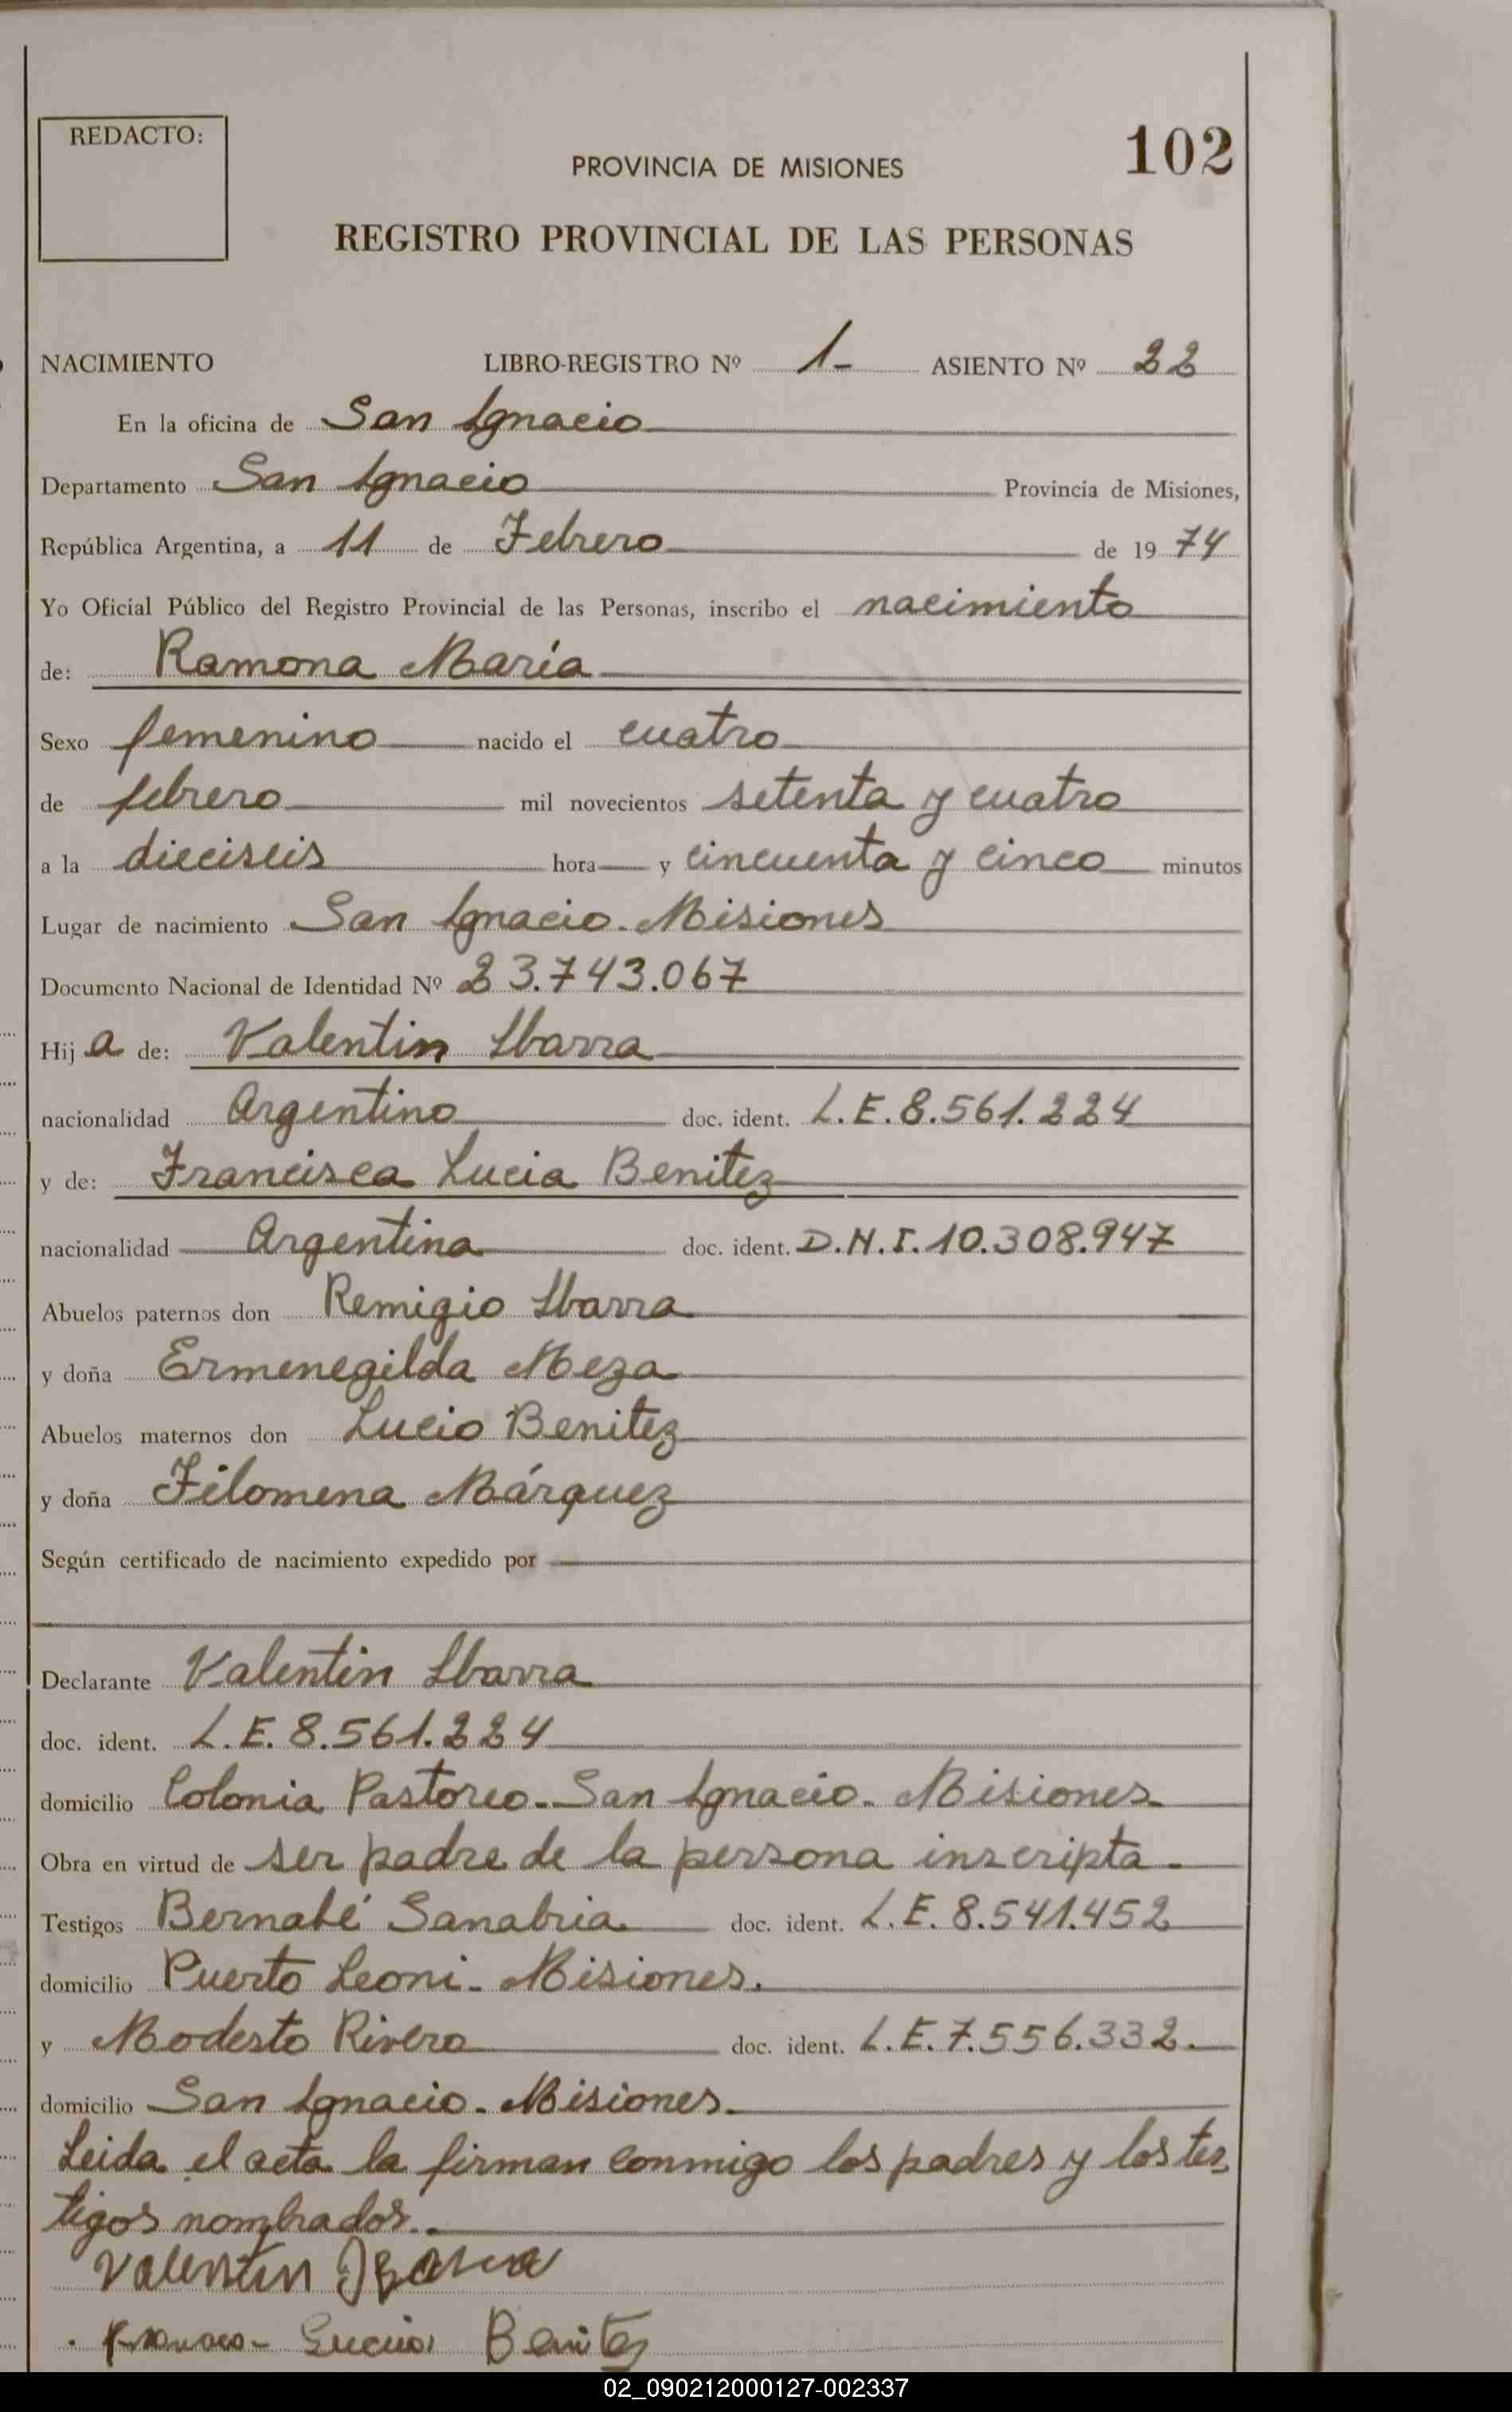 REDACTO:
102
PROVINCIA DE MISIONES
REGISTRO PROVINCIAL DE LAS PERSONAS
NACIMIENTO LIBRO-REGISTRO Nº 1- ASIENTO Nº 22
En la oficina de San Ignacio
Departamento San Ignacio Provincia de Misiones,
República Argentina, a 11 de Febrero de 19 74
Yo Oficial Público del Registro Provincial de las Personas, inscribo el nacimiento
de: Ramona María
Sexo femenino nacido el cuatro
de febrero mil novecientos setenta y cuatro
a la dieciseis hora y cincuenta y cinco minutos
Lugar de nacimiento San Ignacio. Misiones
Documento Nacional de Identidad Nº 23.743.067
Hij a de: Valentin Ibarra
nacionalidad Argentino doc. ident. L.E. 8.561.224
y de: Francisca Lucia Benitez
nacionalidad Argentina doc. ident. D.N.I. 10.308.947
Abuelos paternos don Remigio Ibarra
y doña Ermenegilda Meza
Abuelos maternos don Lucio Benitez
y doña Filomena Márquez
Según certificado de nacimiento expedido por
Declarante Valentin Ibarra
doc. ident. L.E. 8.561.224
domicilio Colonia Pastoreo - San Ignacio - Misiones
Obra en virtud de ser padre de la persona inscripta.
Testigos Bernabé Sanabria doc. ident. L.E. 8.541.452
domicilio Puerto Leoni - Misiones.
y Modesto Rivero doc. ident. L.E. 7.556.332.
domicilio San Ignacio - Misiones.
Leida el acta la firman conmigo los padres y los tes
tigos nombrados..
Valentin Ibarra
Lucia Benitez
02_090212000127-002337